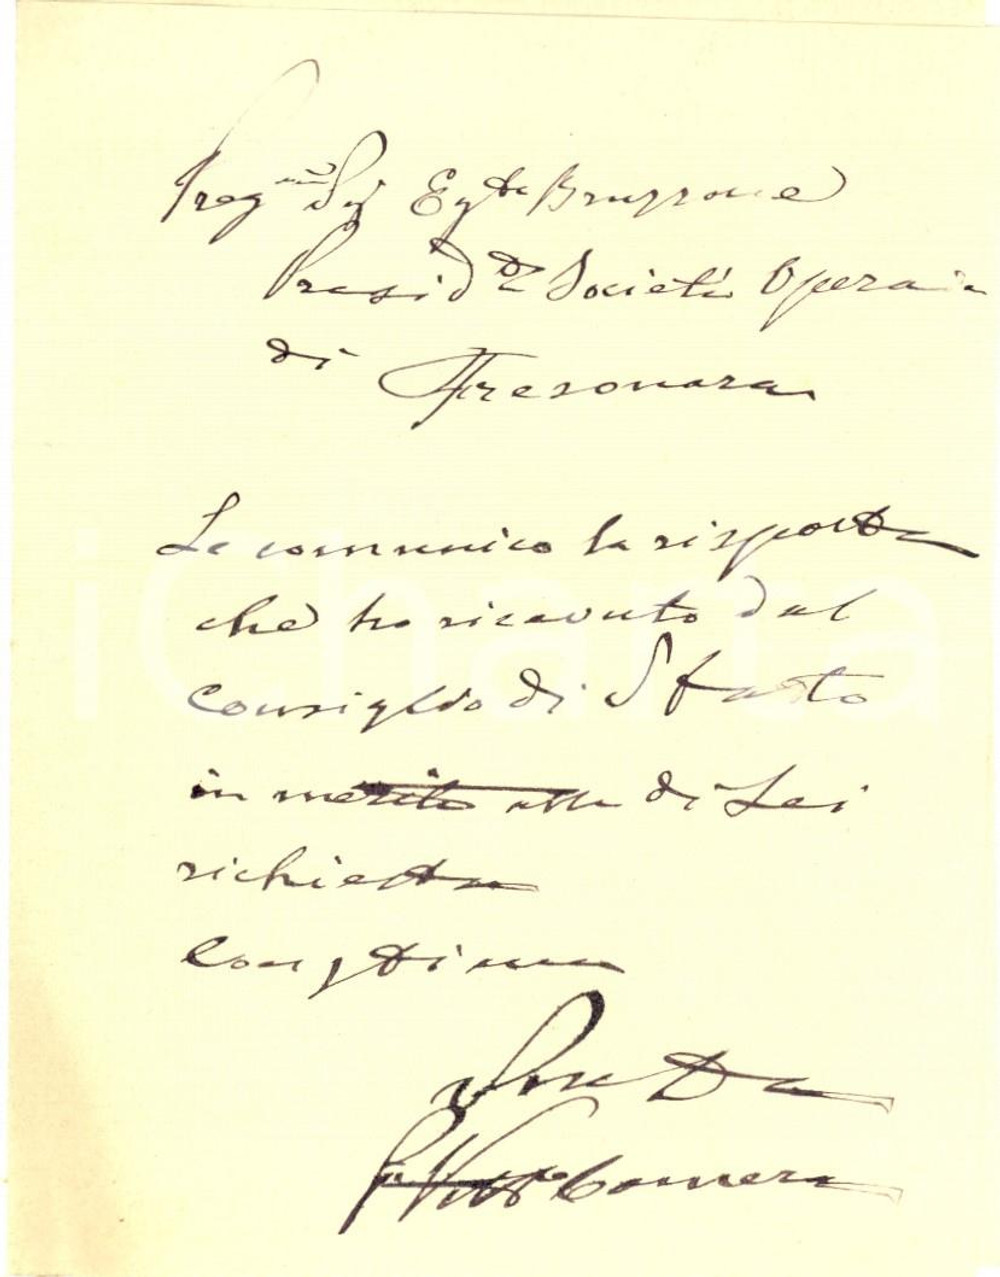 Preg.mo Sig Eg.do Bruzzone
Presid.te Società Operaia
di Fresonara
Le comunico la risposta
che ho ricevuto dal
Consiglio di Stato
in merito alla di Lei
richiesta
iCharta